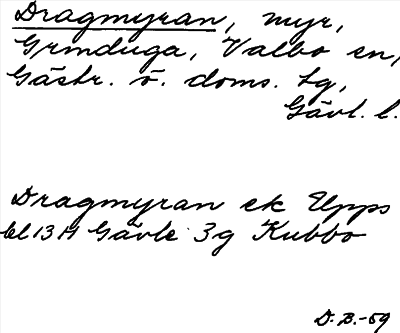 Dragmyran, myr,
Grinduga, Valbo sn,
Gästr. ö. doms. tg,
Gävl. l.
Dragmyran ek Upps
bl 13 H Gävle 3g Kubbo
D. B. -59